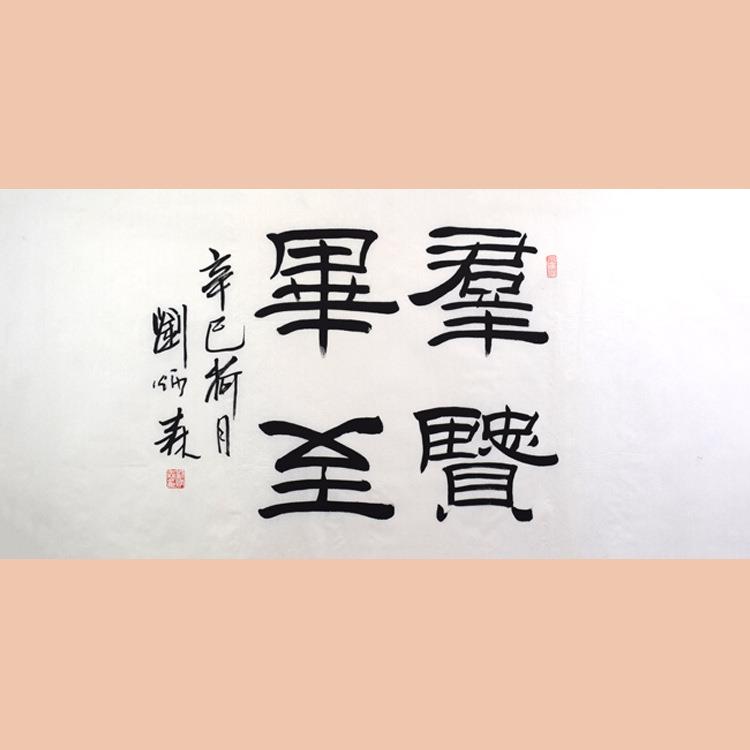 羣賢
畢至
辛巳荷月
劉炳森